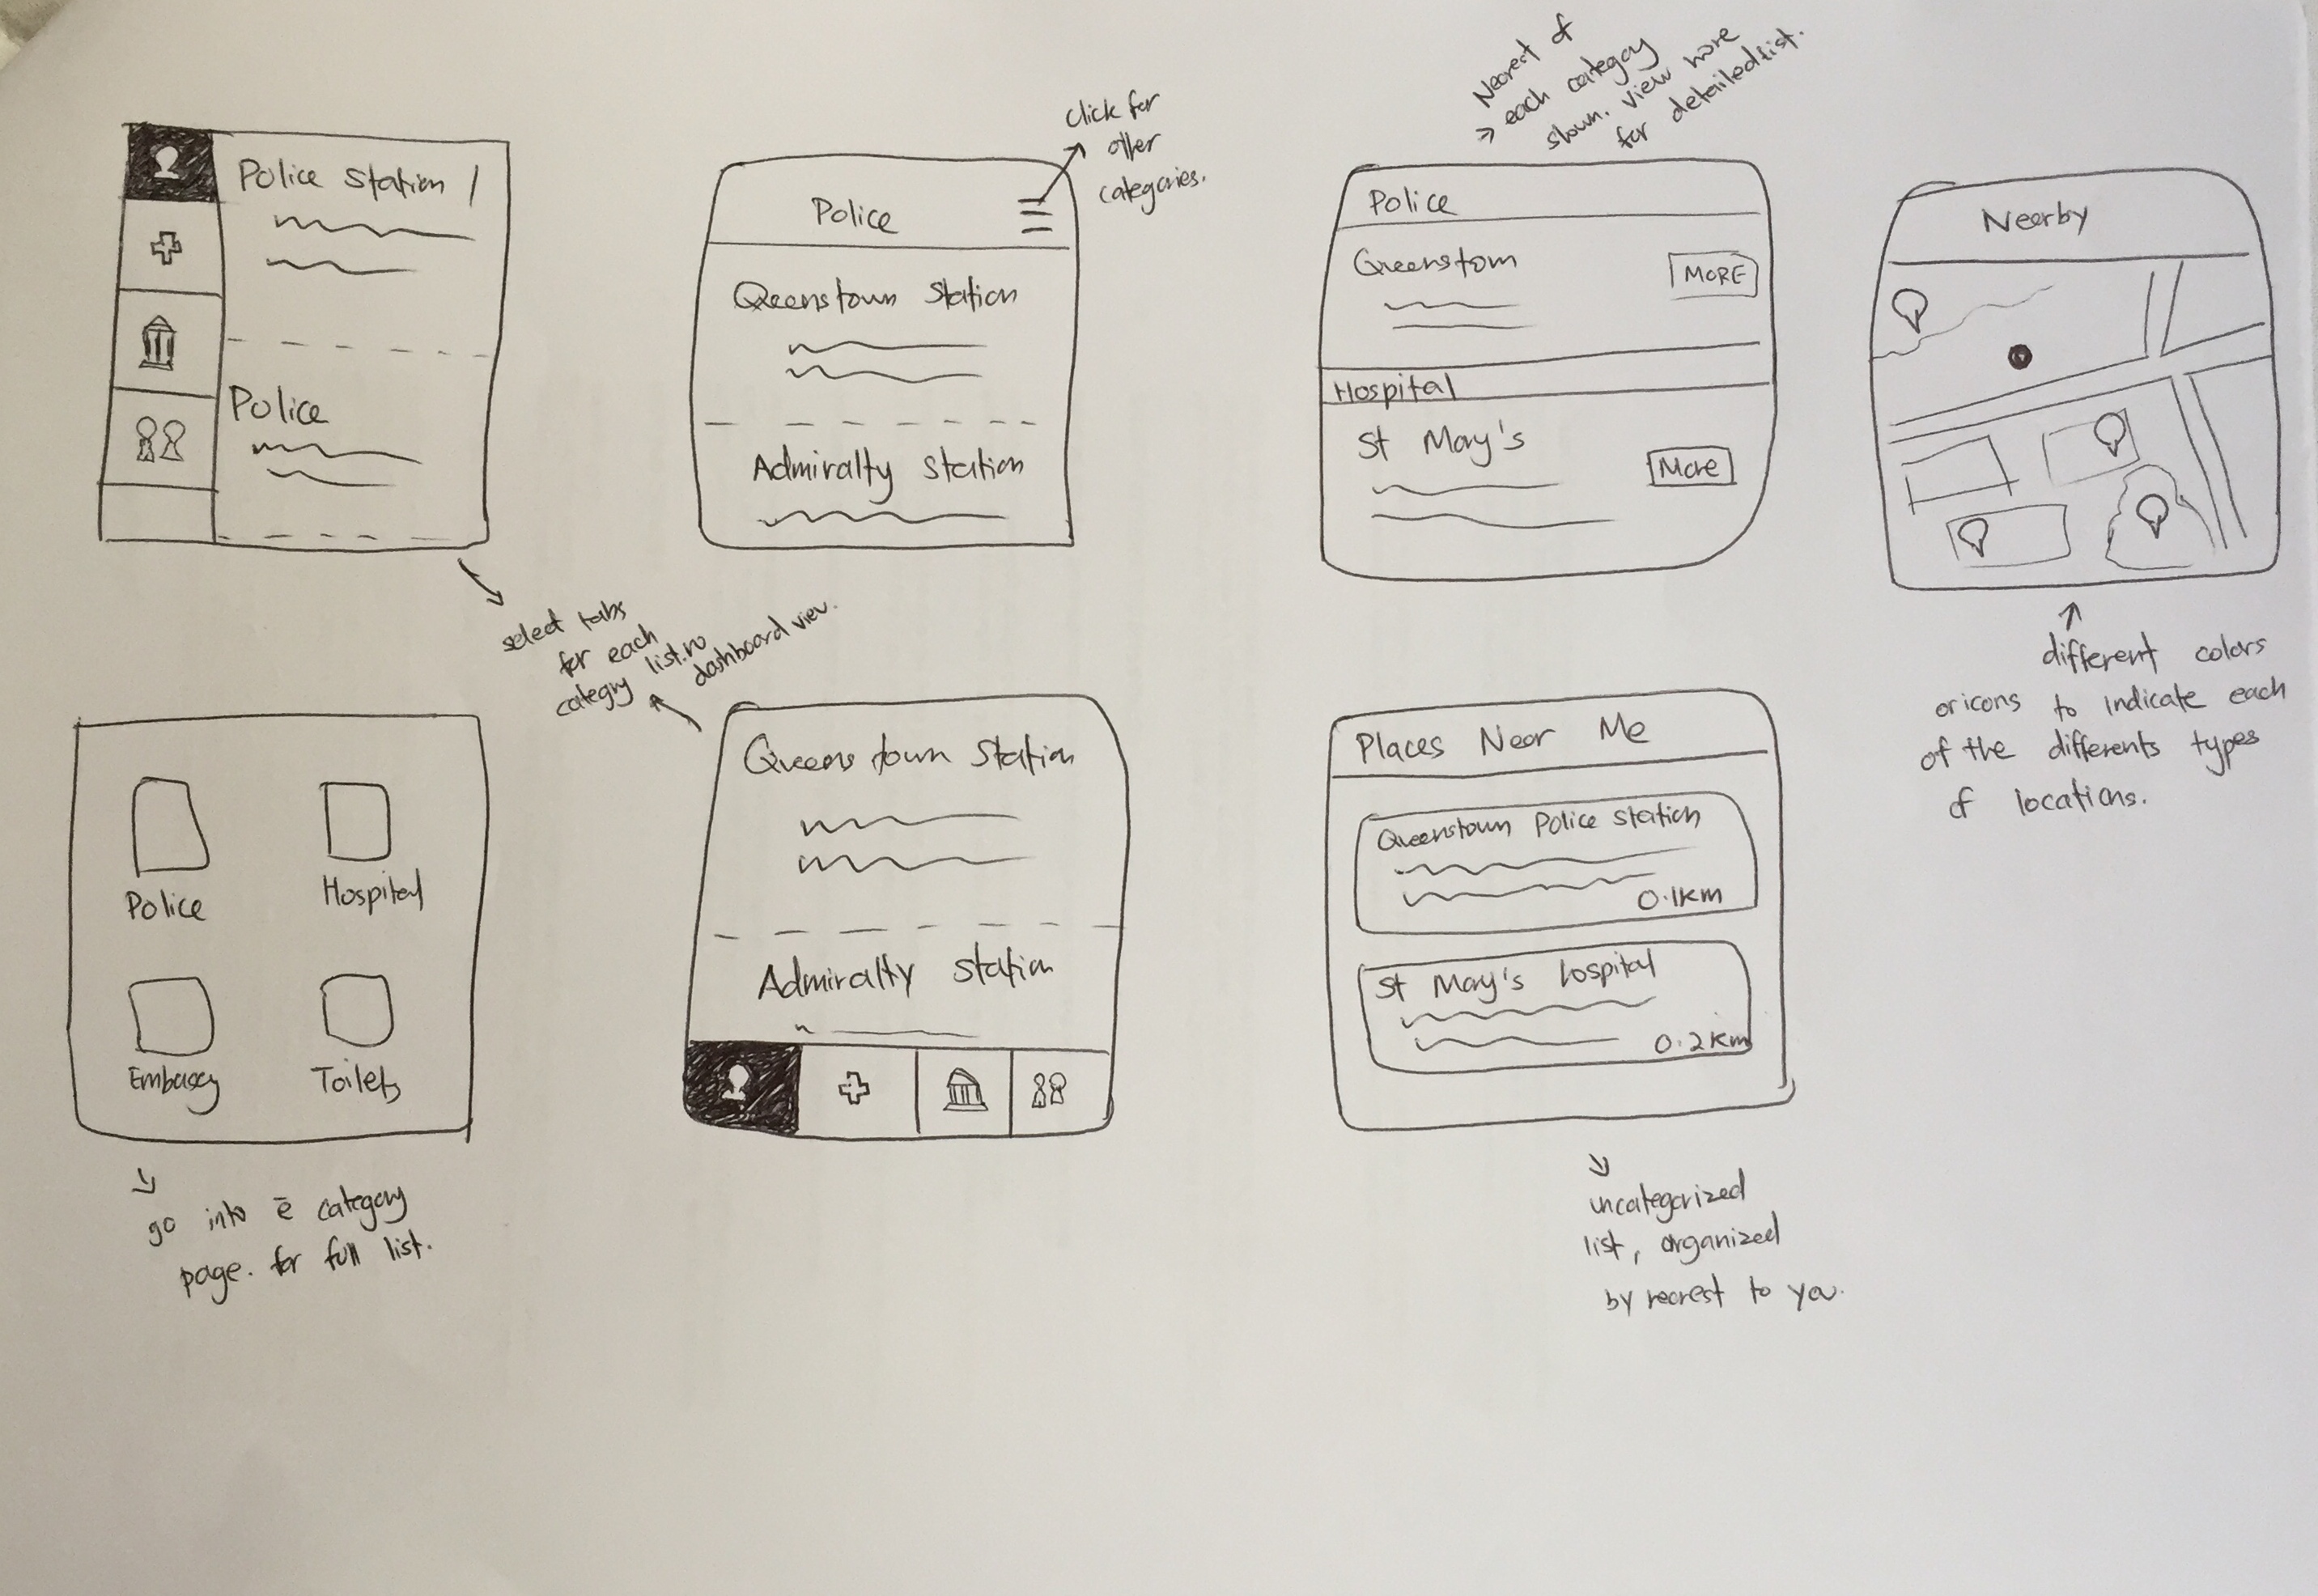 Police Station 1
Police
select tabs
for each
category list. no
dashboard view.
Click for
other
categories.
Police
Queenstown Station
Admiralty Station
Nearest of
each category
shown. view more
for detailed list.
Police
Queenstown
MORE
Hospital
St Mary's
More
Nearby
different colors
or icons to indicate each
of the differents types
of locations.
Police
Hospital
Embassy
Toilets
go into ē category
page. for full list.
Queenstown Station
Admiralty Station
Places Near Me
Queenstown Police Station
0.1km
St Mary's hospital
0.2km
uncategorized
list, organized
by nearest to you.